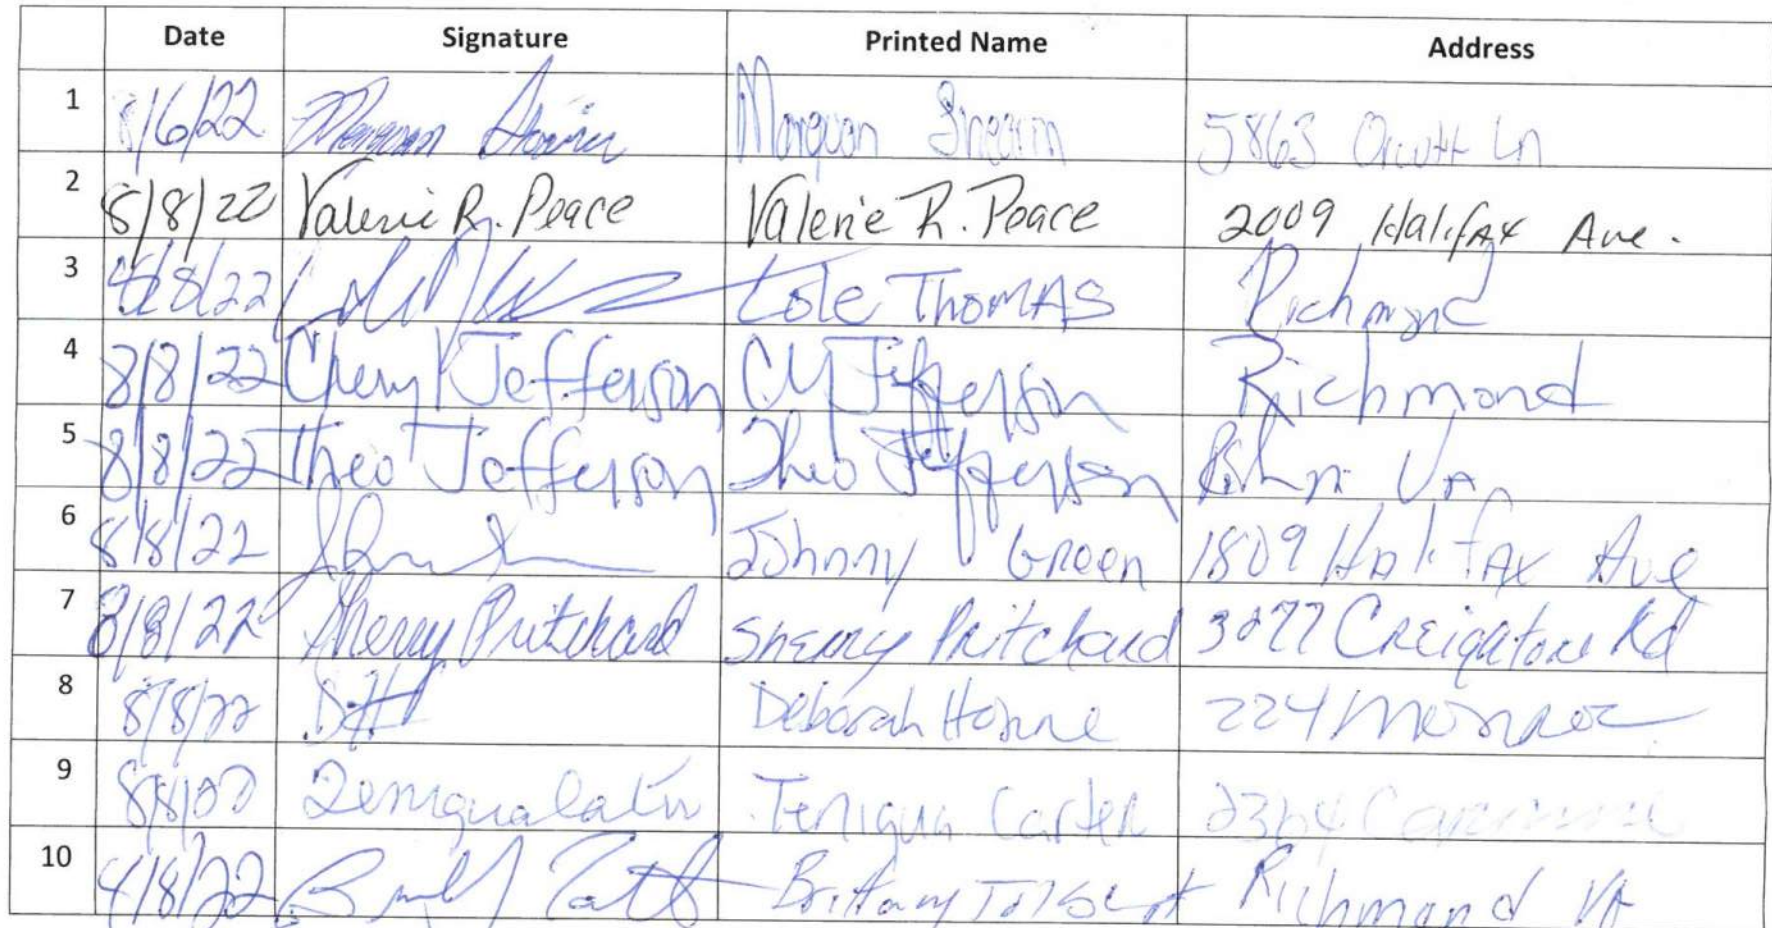 Date Signature Printed Name Address
1 8/6/22 Morquon Shearin 5863 Orcutt Ln
2 8/8/22 Valerie R. Peace Valerie R. Peace 2009 Halifax Ave.
3 8/8/22 Cole Thomas Richmond
4 8/8/22 Cheryl Jefferson CY Jefferson Richmond
5 8/8/22 Theo Jefferson Theo Jefferson
6 8/8/22 Johnny Green 1809 Halifax Ave
7 8/8/22 Sherry Pritchard Sherry Pritchard 3277 Creighton Rd
8 8/8/22 DH Deborah Horne 224 Monroe
9 8/8/22 Teniqua Carter
10 8/8/22 Brittany Talbert Richmond VA